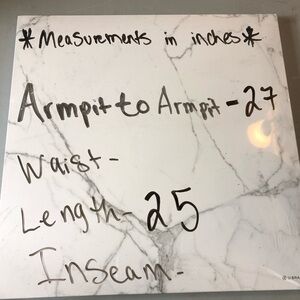 *Measurements in inches*
Armpit to Armpit-27
Waist-
Length-25
Inseam-